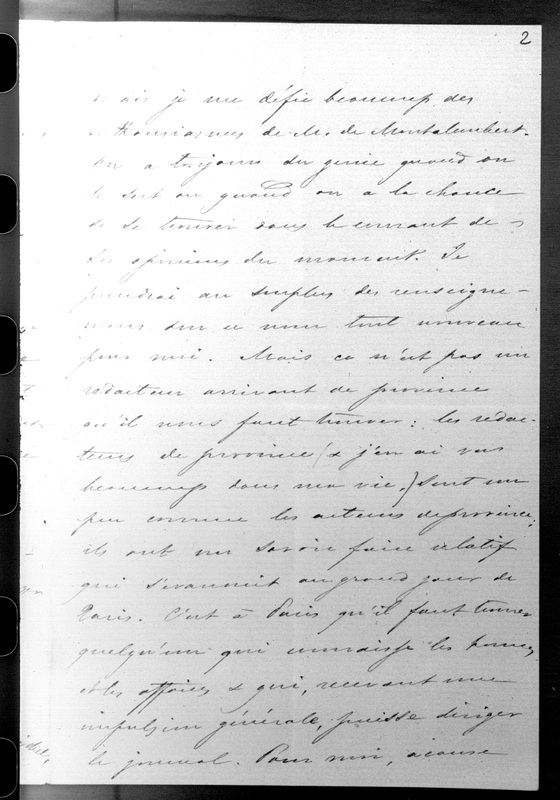 2
mais je me défie beaucoup des
enthousiasmes de M. de Montalembert.
On a toujours du genie quand on
le sert ou quand on a la chance
de se trouver dans le courant de
ses opinions du moment. Je
prendrai au surplus des renseigne-
mens sur ce nom tout nouveau
pour moi. Mais ce n'est pas un
rédacteur arrivant de province
qu'il nous faut trouver : les rédac-
teurs de province (& j'en ai vus
beaucoup dans ma vie.) sont un
peu comme les acteurs de province;
ils ont un savoir faire relatif
qui s'évanouit au grand jour de
Paris. C'est à Paris qu'il faut trouver
quelqu'un qui connaisse les hommes
et les affaires & qui, recevant une
impulsion générale, puisse diriger
le journal. Pour moi, à cause